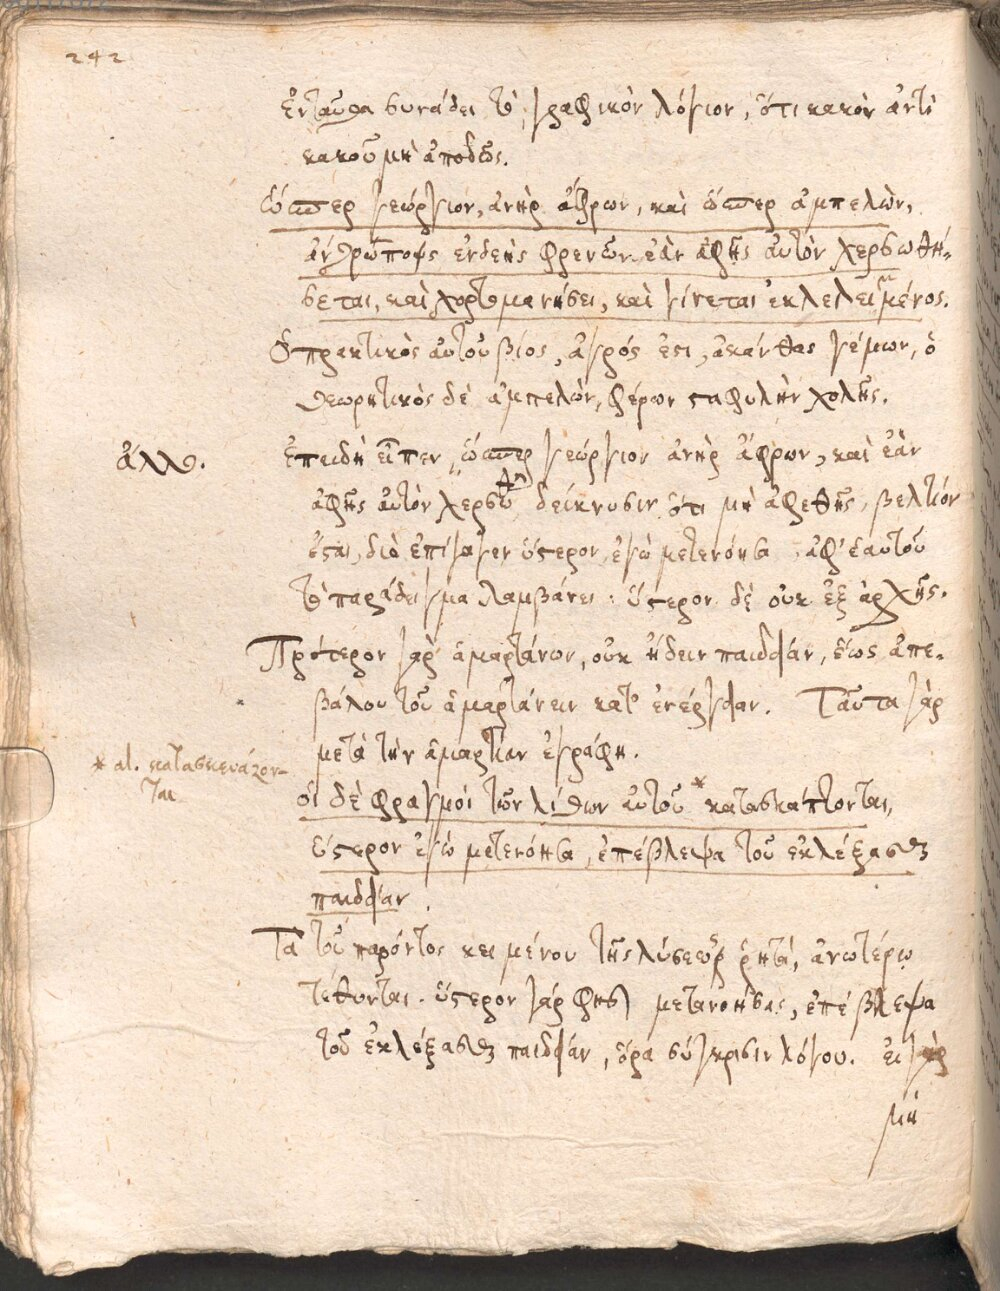 242
ἐνταῦθα συνάδει τὸ γραφικὸν λόγιον, ὅτι κακὸν ἀντὶ
κακοῦ μὴ ἀποδῷς.
ὥσπερ γεώργιον, ἀνὴρ ἄφρων, καὶ ὥσπερ ἀμπελὼν,
ἄνθρωπος ἐνδεὴς φρενῶν. ἐὰν ἀφῇς αὐτὸν χερσωθή-
σεται, καὶ χορτομανήσει, καὶ γίνεται ἐκλελειμμένος.
Ὁ πρακτικὸς αὐτοῦ βίος, ἀγρός ἐστι, ἀκάνθας γέμων, ὁ
θεωρητικὸς δὲ ἀμπελὼν, φέρων σταφυλὴν χολῆς.
ἄλλου.
Ἐπειδὴ εἶπεν, ὥσπερ γεώργιον ἀνὴρ ἄφρων, καὶ ἐὰν
ἀφῇς αὐτὸν χερσωθή δείκνυσιν ὅτι μὴ ἀφεθῇς, βελτιόν
ἔσται, διὸ ἐπήγαγεν ὕστερον, ἐγὼ μετενόησα. ἀφ' ἑαυτοῦ
τὸ παράδειγμα λαμβάνει. ὕστερον δὲ οὐκ ἐξ ἀρχῆς.
Πρότερον γὰρ ἁμαρτάνων, οὐκ ᾔδειν παιδείαν, ἕως ἀπε-
βάλου τοῦ ἁμαρτάνειν κατ' ἐνέργειαν. Ταῦτα γὰρ
μετὰ τὴν ἁμαρτίαν ἐγράφη.
* al. κατασκευάζον-
ται
οἱ δὲ φραγμοὶ τῶν λίθων αὐτοῦ * κατασκάπτονται,
ὕστερον ἐγὼ μετενόησα, ἐπέβλεψα τοῦ ἐκλέξασθαι
παιδείαν.
Τὰ τοῦ παρόντος κειμένου τῆς λύσεως ῥητὰ, ἀνωτέρω
τέθυνται. ὕστερον γάρ φησι μετανοήσας, ἐπέβλεψα
τοῦ ἐκλέξασθαι παιδείαν, ὅρα σύγκρισιν λόγου. εἰ γὰρ
μὴ